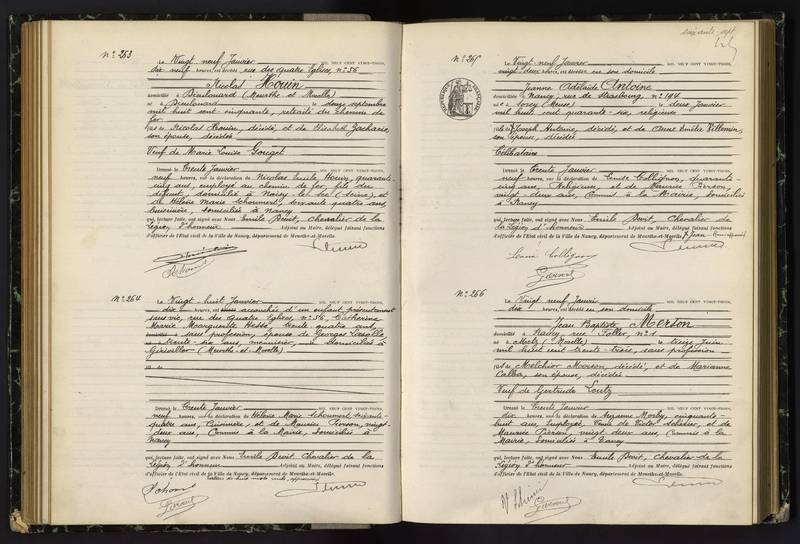 soixante-sept
N° 263
Le Vingt neuf Janvier MIL NEUF CENT VINGT-TROIS,
dix neuf heures, est décédé rue des quatre Eglises, n° 56
Nicolas Houin
domicilié à (Meurthe et Moselle)
né à le douze septembre
mil huit cent cinquante, retraité du chemin de
fer
fils de Nicolas Houin, décédé, et de Elisabeth Zacharie,
son épouse, décédée
Veuf de Marie Louise Gouget
Dressé le Trente Janvier MIL NEUF CENT VINGT-TROIS,
neuf heures, sur la déclaration de Nicolas Emile Houin, quarante-
cinq ans, employé au chemin de fer, fils du
défunt, domicilié à Noisy le Sec (Seine), et
de Hélène Marie Schoumert, soixante quatre ans,
cuisinière, domiciliée à Nancy
qui, lecture faite, ont signé avec Nous Emile Chevalier de la
Légion d'honneur Adjoint au Maire, délégué faisant fonctions
d'officier de l'Etat civil de la Ville de Nancy, département de Meurthe-et-Moselle.
N° 264
Le Vingt huit Janvier MIL NEUF CENT VINGT-TROIS,
dix heures, est accouchée d'un enfant présentement
sans vie, rue des quatre Eglises, n° 56, Catherine
Marie Marguerite Hesse, trente quatre ans,
sans profession, épouse de Georges
trente six ans, menuisier, domiciliés à
(Meurthe et Moselle)
Dressé le Trente Janvier MIL NEUF CENT VINGT-TROIS,
neuf heures, sur la déclaration de Hélène Marie Schoumert, soixante-
quatre ans, Cuisinière, et de Maurice Pierson, vingt-
deux ans, Commis à la Mairie, domiciliés à
Nancy
qui, lecture faite, ont signé avec Nous Emile Chevalier de la
Légion d'honneur Adjoint au Maire, délégué faisant fonctions
d'officier de l'Etat civil de la Ville de Nancy, département de Meurthe-et-Moselle.
N° 265
Le Vingt-neuf Janvier MIL NEUF CENT VINGT-TROIS,
vingt-deux heures, est décédée en son domicile
Jeanne Adélaïde Antoine
domiciliée à Nancy, rue de Strasbourg, n° 194
née à Sorcy (Meuse) le deux Janvier
mil huit cent quarante-six, religieuse
fille de Joseph Antoine, décédé, et de Anne Emilie Villemin,
son épouse, décédée
Célibataire
Dressé le Trente Janvier MIL NEUF CENT VINGT-TROIS,
neuf heures, sur la déclaration de Louise Collignon, quarante-
cinq ans, Religieuse, et de Maurice Pierson,
vingt-deux ans, Commis à la Mairie, domiciliés
à Nancy
qui, lecture faite, ont signé avec Nous Emile Chevalier de
la Légion d'honneur Adjoint au Maire, délégué faisant fonctions
d'officier de l'Etat civil de la Ville de Nancy, département de Meurthe-et-Moselle. Jean
Louise Collignon
N° 266
Le Vingt neuf Janvier MIL NEUF CENT VINGT-TROIS,
dix heures, est décédé en son domicile
Jean Baptiste Merson
domicilié à Nancy, rue n° 1
né à Metz (Moselle) le treize Juin
mil huit cent trente trois, sans profession
fils de Melchior Merson, décédé, et de Marianne
son épouse, décédée
Veuf de Gertrude Loutz
Dressé le Trente Janvier MIL NEUF CENT VINGT-TROIS,
dix heures, sur la déclaration de Suzanne cinquante-
huit ans, Employée, Veuve de Victor et de
Maurice Pierson, vingt deux ans, Commis à la
Mairie, domiciliés à Nancy
qui, lecture faite, ont signé avec Nous Emile Chevalier de la
Légion d'honneur Adjoint au Maire, délégué faisant fonctions
d'officier de l'Etat civil de la Ville de Nancy, département de Meurthe-et-Moselle.